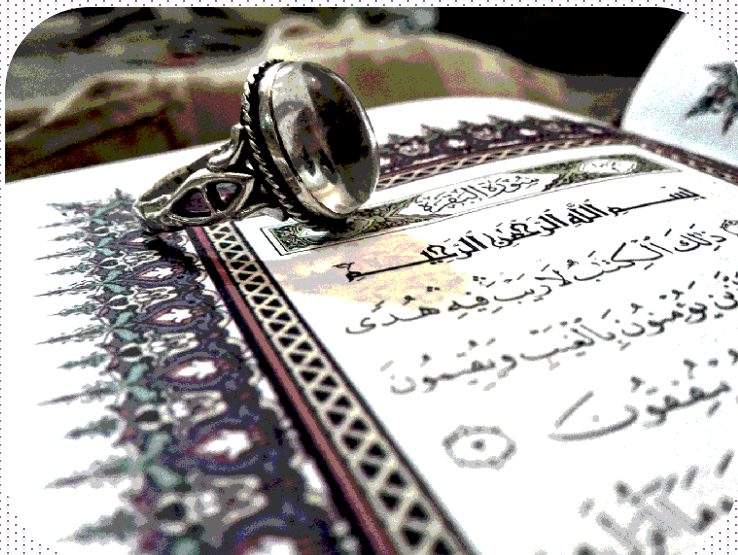 سُورَةُ البَقَرَةِ
بِسْمِ اللَّهِ الرَّحْمَٰنِ الرَّحِيمِ
ذَٰلِكَ ٱلْكِتَٰبُ لَا رَيْبَ فِيهِ هُدًى
يُؤْمِنُونَ بِٱلْغَيْبِ وَيُقِيمُونَ
يُنفِقُونَ